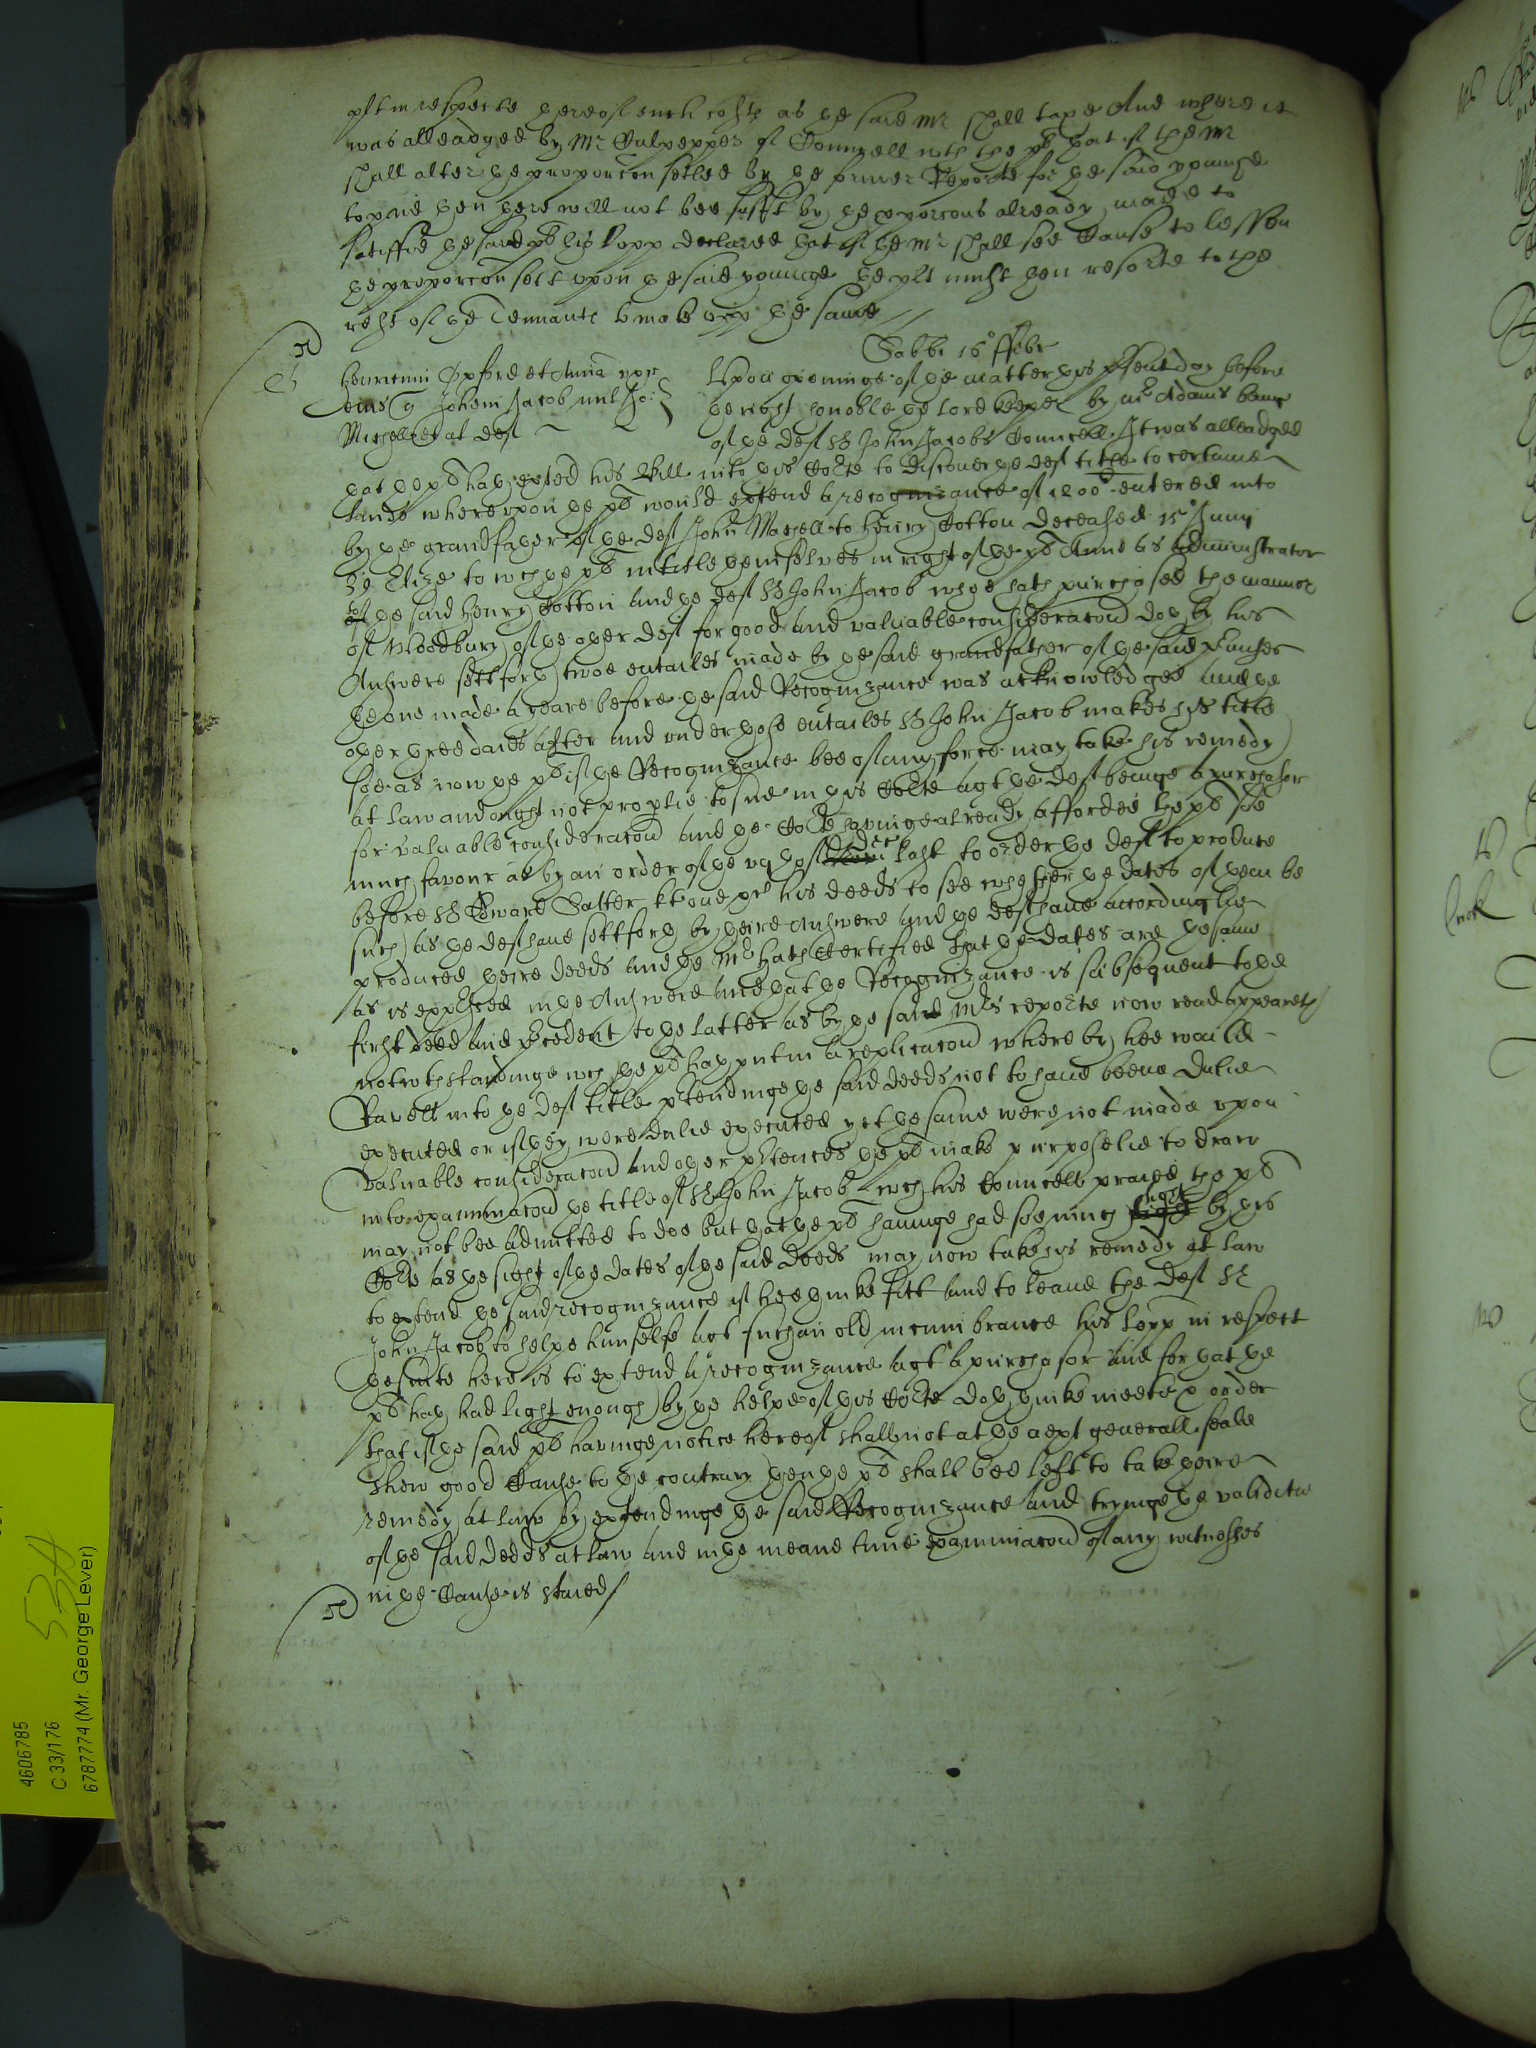 plt in respecte thereof such costs as the said Mr shall taxe And where it
was alleadged by Mr Culpepper of Councell wth the pts that if the Mr
shall alter the proporcon setled by the former Reporte for the said younge
to paie then there will not bee sufft by the proporcons already made to
satisffie the said pts his Lopp declared that if the Mr shall see Cause to lessen
the proporcon sett upon the said younge the plt must then resorte to the
rest of the Tennants to make upp the same
Sabbi 16o ffebr
Henricum Oxford et Anna uxor
eius q Johem Jacob mil Jo:
Maxell et at def
Upon openinge of the matter this psent day before
the right honoble the Lord keeper by Mr Adams being
of the def Sr John Jacobs Councell It was alleadged
that the pts hath exted his Bill into this Corte to discover the def title to certaine
lands whereupon the pts would extend a recognizance of 1200l entered into
by the grandfather of the def John Maxell to Henry Cotton deceased 15o Junij
3o Elize to wch the pts intitle themselves in right of the pt Anne as administrator
of the said Henry Cotton and the def Sr John Jacob whoe hath purchased the mannor
of Woodbury of the other def for good and valuable consideracon doth by his
Answere sett forth twoe entailes made by the said grandfather of the said Maxell
the one made a yeare before the said Recognizance was acknowledged and the
other three daies after and under those entailes Sr John Jacob makes his title
soe as now the pts if the Recognizance bee of any force may take his remedy
at law and ought not proptie to sue in this Corte agt the def beinge a purchasor
for valuable consideracon and the Corte havinge already afforded the pts soe
much favour as by an order of the vijth of Dec last to order the def to produce
before Sr Edward Salter kt one &c his deeds to see whether the dates of them be
such as the def have sett forth by theire Answere and the def have accordinglie
produced theire deeds and the Mr hath Certified that the dates are the same
as is expssed in the Answere and that the Recognizance is subsequent to the
first deed and pcedent to the latter as by the said Mrs reporte now read appeareth
notwthstandinge wch the pts hath put in a replicacon where by hee would
Ravell into the def title ptendinge the said deeds not to have beene dulie
executed or if they were dulie executed yet the same were not made upon
valuable consideracon and other ptences the pts make purposelie to draw
into examinacon the title of Sr John Jacob wch his Councell praied the pts
may not bee admitted to doe but that the pts havinge had soe much light by this
Corte as the sight of the dates of the said deeds may now take his remedy at law
to extend the said recognizance if hee thinke fitt and to leave the def Sr
John Jacob to helpe himselfe agt such an old incumbrance his Lopp in respect
the suite here is to extend a recognizance agt a purchasor and for that the
pts hath had light enough by the helpe of this Corte doth thinke meete & order
that if the said pts havinge notice hereof shall not at the next generall seale
shew good Cause to the contrary then the pts shall bee left to take theire
remedy at law by extendinge the said Recognizance and tryinge the validitie
of the said deeds at law and in the meane time examinacon of any witnesses
in the Cause is staied
4606785
C 33/176
6787774 (Mr. George Lever)
53A